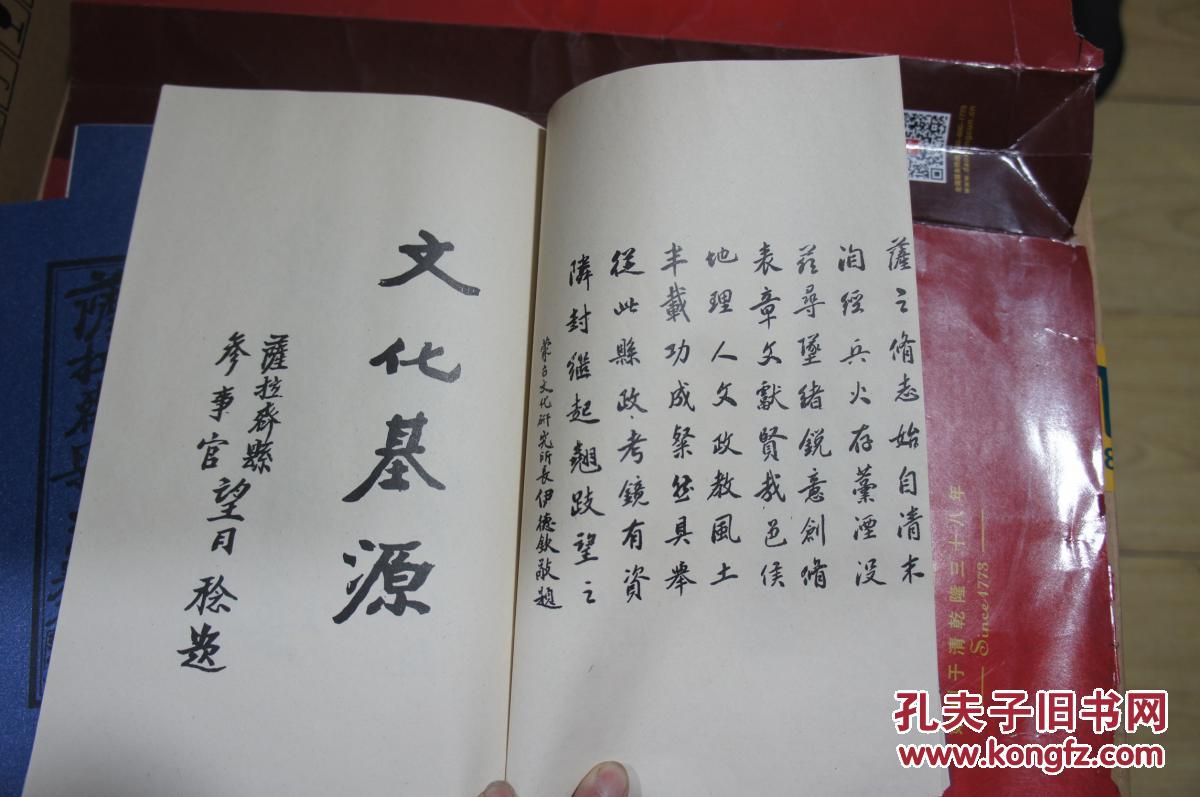 薩之脩志始自清末
洎經兵火存藁湮没
茲尋墜緒銳意創脩
表章文獻賢哉邑侯
地理人文政教風土
半載功成粲然具舉
從此縣政考鏡有資
隣封繼起翹跂望之
蒙古文化研究所長伊德欽敬題
文化基源
薩拉齊縣
參事官望月稔題
薩拉齊縣
于清乾隆三十八年
Since 1773
孔夫子旧书网
www.kongfz.com